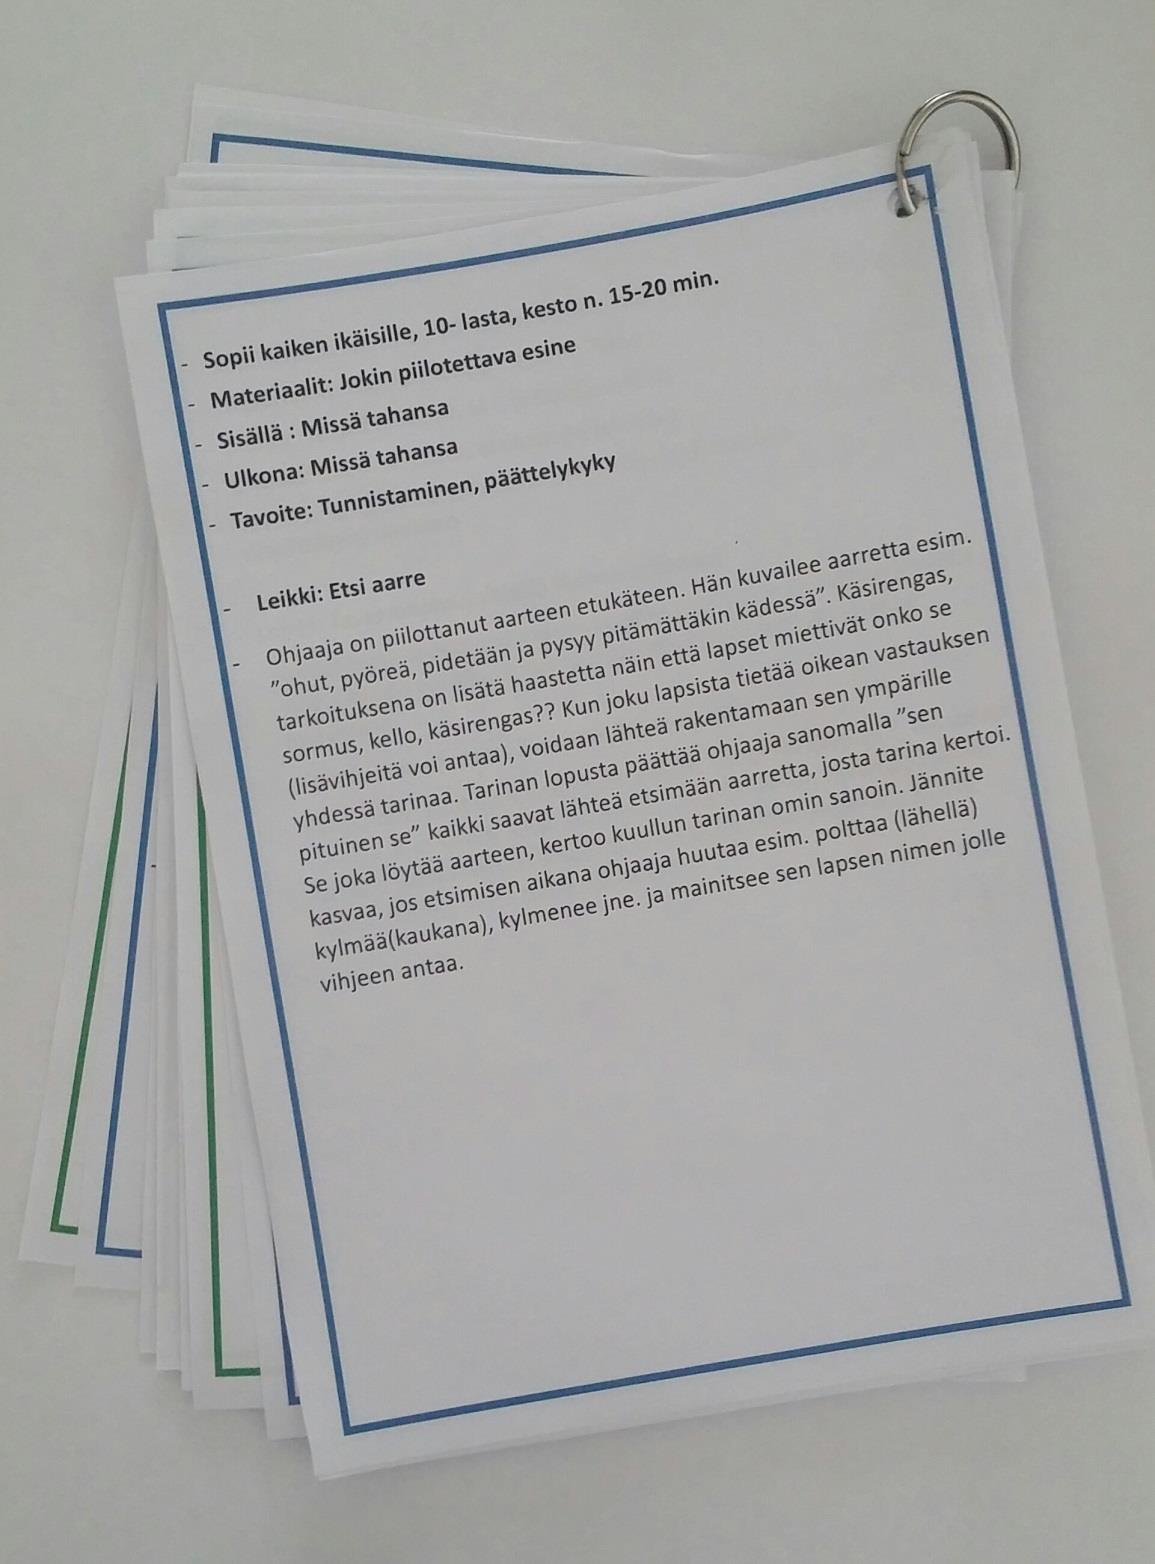 - Sopii kaiken ikäisille, 10- lasta, kesto n. 15-20 min.
- Materiaalit: Jokin piilotettava esine
- Sisällä : Missä tahansa
- Ulkona: Missä tahansa
- Tavoite: Tunnistaminen, päättelykyky
- Leikki: Etsi aarre
- Ohjaaja on piilottanut aarteen etukäteen. Hän kuvailee aarretta esim.
”ohut, pyöreä, pidetään ja pysyy pitämättäkin kädessä”. Käsirengas,
tarkoituksena on lisätä haastetta näin että lapset miettivät onko se
sormus, kello, käsirengas?? Kun joku lapsista tietää oikean vastauksen
(lisävihjeitä voi antaa), voidaan lähteä rakentamaan sen ympärille
yhdessä tarinaa. Tarinan lopusta päättää ohjaaja sanomalla ”sen
pituinen se” kaikki saavat lähteä etsimään aarretta, josta tarina kertoi.
Se joka löytää aarteen, kertoo kuullun tarinan omin sanoin. Jännite
kasvaa, jos etsimisen aikana ohjaaja huutaa esim. polttaa (lähellä)
kylmää(kaukana), kylmenee jne. ja mainitsee sen lapsen nimen jolle
vihjeen antaa.